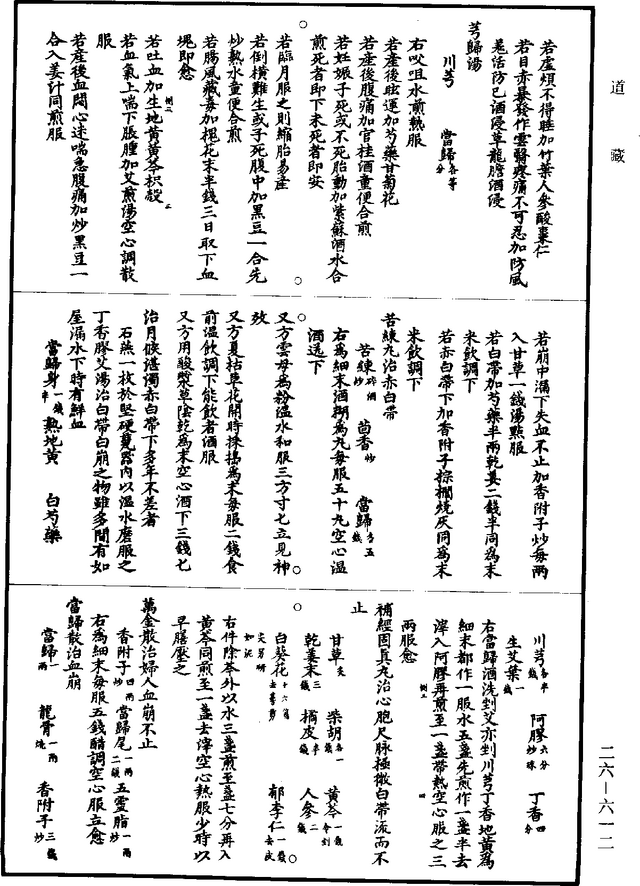 道藏
若虛煩不得睡加竹葉人參酸棗仁
若目赤暴發作雲翳疼痛不可忍加防風
羌活防巳酒浸草龍膽酒浸
芎歸湯
川芎 當歸各等分
右㕮咀水煎熱服
若產後眩運加芍藥甘菊花
若產後腹痛加官桂酒童便合煎
若妊娠子死或不死胎動加紫蘇酒水合
煎死者即下未死者即安
若臨月服之則縮胎易產
若倒橫難生或子死腹中加黑豆一合先
炒熱水童便合煎
若腸風藏毒加槐花末半錢三日取下血
塊即愈
若吐血加生地黃黃芩枳殼
若血氣上喘下脹腫加艾煎湯空心調散
服
若產後血悶心迷喘急腹痛加炒黑豆一
合入姜汁同煎服
若崩中漏下失血不止加香附子炒每兩
入甘草一錢湯點服
若白帶加芍藥半兩乾姜二錢半同為末
米飲調下
若赤白帶下加香附子棕櫚燒灰同為末
米飲調下
苦練丸治赤白帶
苦練碎酒炒 茴香炒 當歸各五錢
右為細末酒糊為丸每服五十丸空心溫
酒送下
又方雲母為粉溫水和服三方寸匕立見神
效
又方夏枯草花開時採搗為末每服二錢食
前溫飲調下能飲者酒服
又方用酸漿草陰乾為末空心酒下三錢匕
治月候湛濁赤白帶下多年不差者
石燕一枚於堅硬甆器內以溫水磨服之
丁香膠艾湯治白帶白崩之物雖多間有如
屋漏水下時有鮮血
當歸身一錢半 熟地黃 白芍藥
川芎各半錢 阿膠六分炒珠 丁香四分
生艾葉一錢
右當歸酒洗剉艾亦剉川芎丁香地黃為
細末都作一服水五盞先煎作一盞半去
滓入阿膠再煎至一盞帶熱空心服之三
兩服愈
補經固真丸治心胞尺脉極微白帶流而不
止
甘草炙 柴胡各一錢 黃芩一錢令剉
乾姜末三錢 橘皮半錢 人參二錢
白葵花十六箇去萼剪 郁李仁一錢去皮尖另研如泥
右件除芩外以水三盞煎至盞七分再入
黃芩同煎至一盞去滓空心熱服少時以
早膳壓之
萬金散治婦人血崩不止
香附子四兩炒 當歸尾一兩二錢 五靈脂一兩炒
右為細末每服五錢醋調空心服立愈
當歸散治血崩
當歸一兩 龍骨一兩燒 香附子三錢炒
二六—六一二